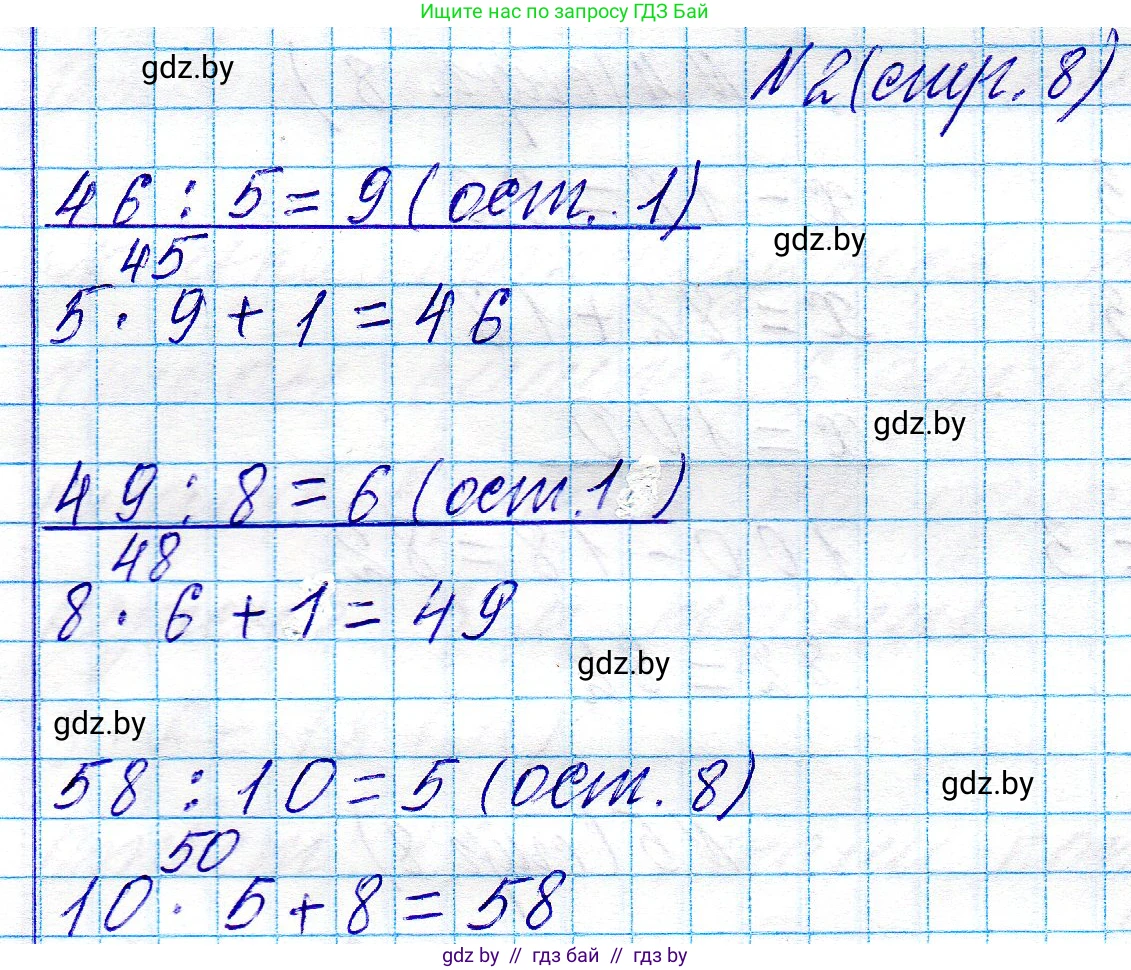 Ищите нас по запросу ГДЗ Бай
gdz.by
№2(стр. 8)
46 : 5 = 9 (ост. 1)
gdz.by
45
5 · 9 + 1 = 46
gdz.by
49 : 8 = 6 (ост. 1)
48
8 · 6 + 1 = 49
gdz.by
gdz.by
58 : 10 = 5 (ост. 8)
gdz.by
50
10 · 5 + 8 = 58
gdz.by // гдз бай // gdz.by